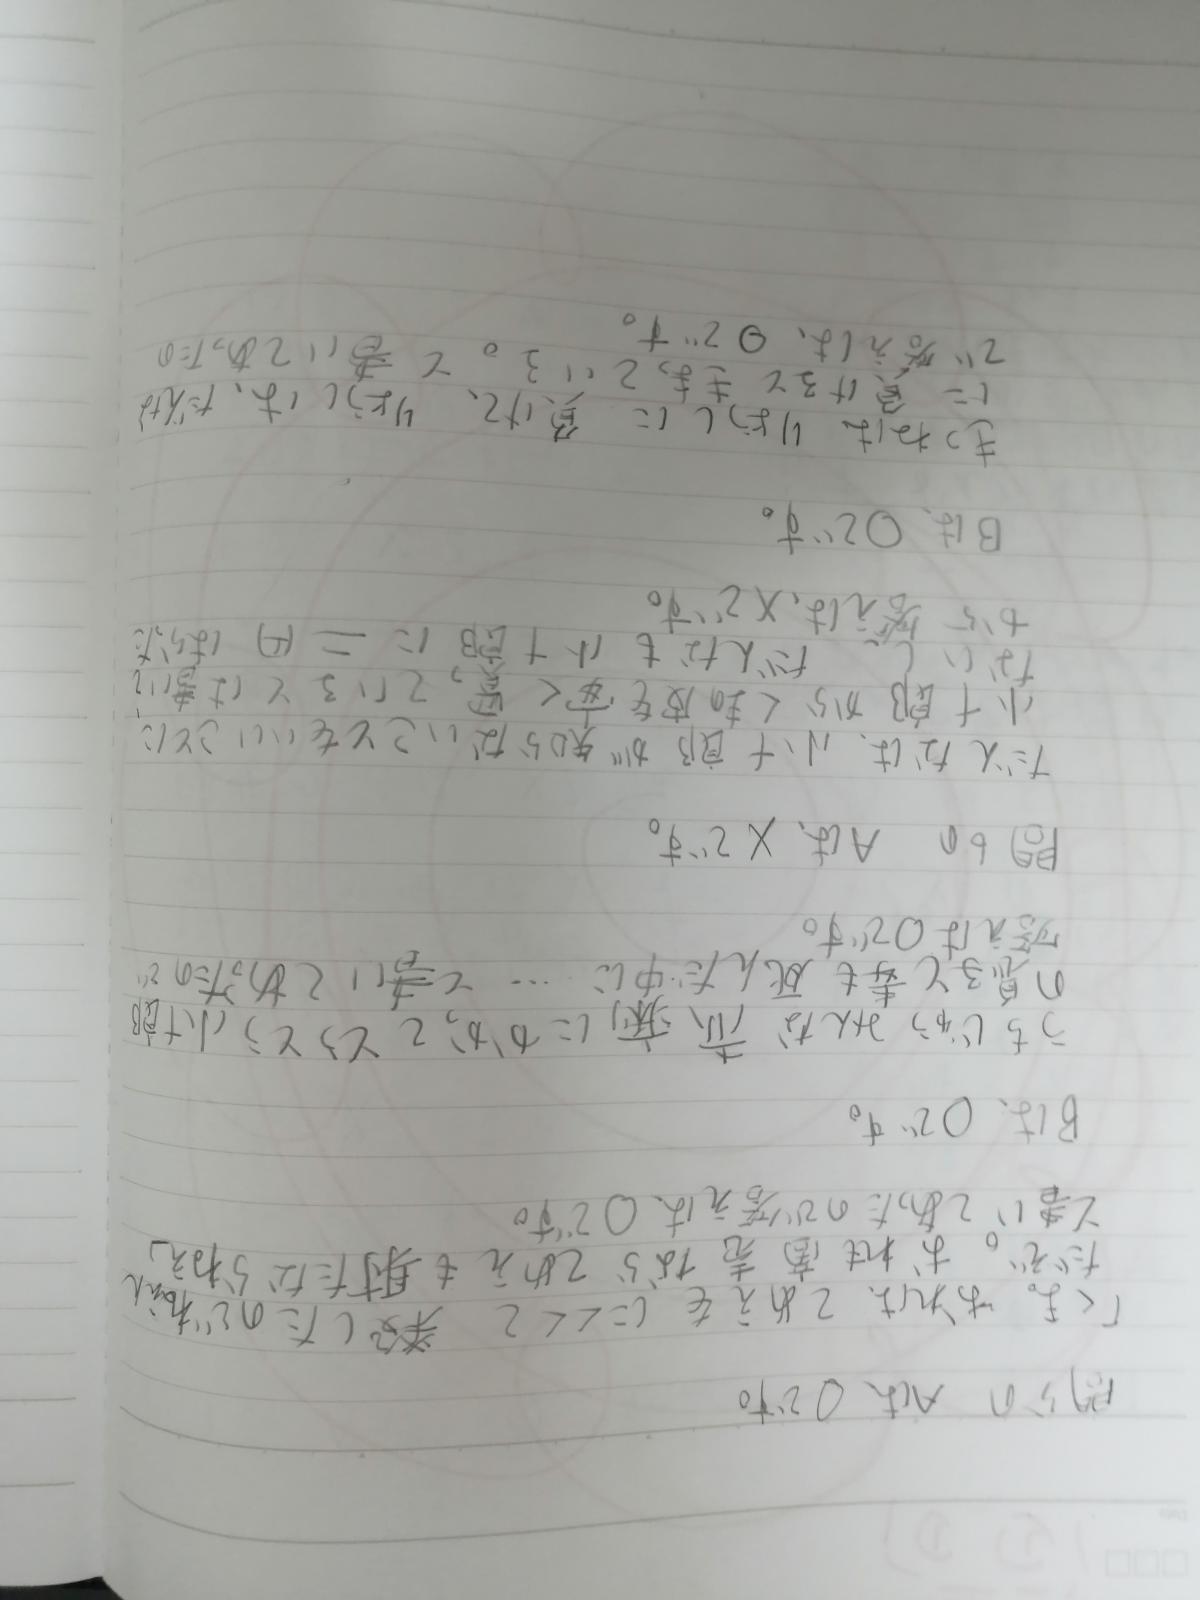 問5の Aは、○です。
「くま。おれは、てめえをにくくて 殺したのでねえん
だぞ。おれも商売ならてめえも射たならねえ」
と書いてあったので答えは、○です。
Bは、○です。
うちじゅうみんな赤痢にかかってとうとう小十郎
の息子と妻も死んだ中に … と書いてあったので
答えは○です。
問6の Aは、×です。
だんなは、小十郎が知らないことをいいことに
小十郎からくまの皮を安く買っているとは書いて
ないし、だんなも小十郎に二円はらった
から 答えは、×です。
Bは、○です。
きつねは、りょうしに 負けて、りょうしは、だんな
に負けると きまっている。と書いてあったの
で 答えは、○です。